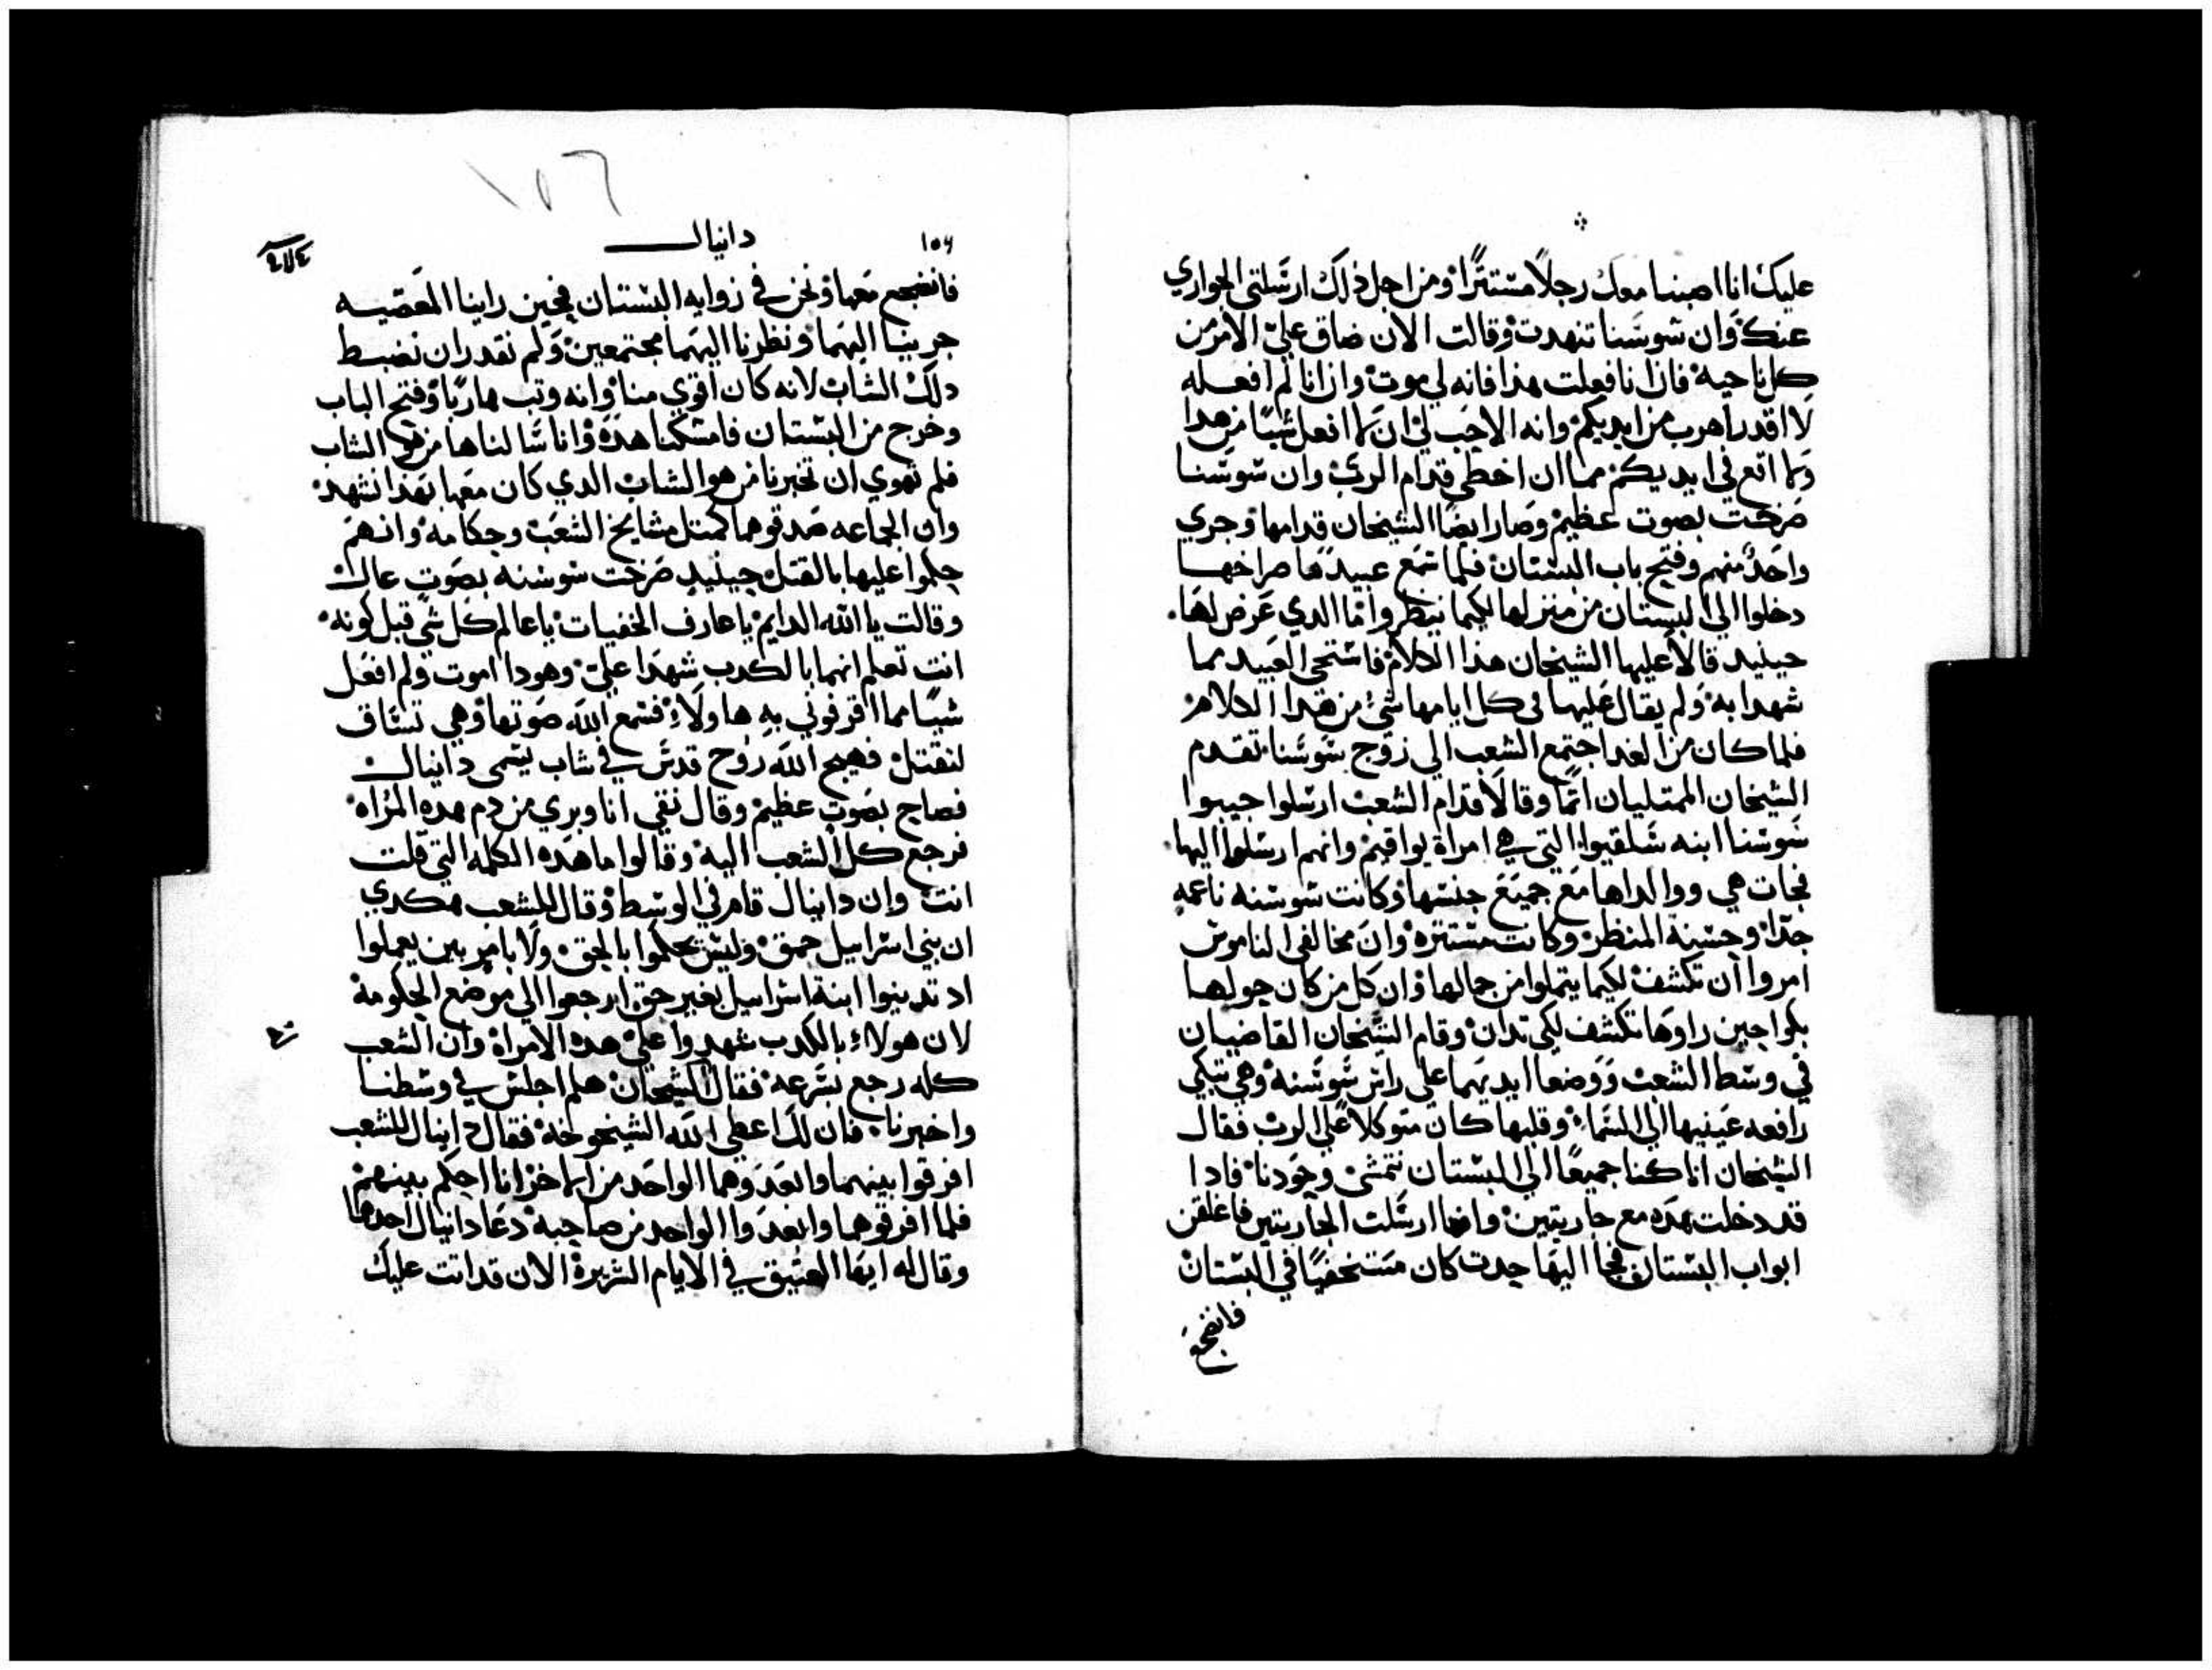 عليك انا اصبنا معك رجلاً مستتراً ومن اجل ذلك ارسلتي الجواري
عنك وان شوسنا تنهدت وقالت الان ضاق علي الامر من
كل ناحية فان انا فعلت هذا فانه لي موت وان انا لم افعله
لا اقدر اهرب من ايديكم وانه الاحب لي ان لا افعل شيئاً من هدا
ولا اقع في ايديكم مما ان اخطي قدام الرب وان شوسنا
صرخت بصوت عظيم وصارا ايضاً الشيخان قدامها وجري
واحد منهم وفتح باب البستان فلما سمع عبيدها صراخها
دخلوا الي البستان من منزلها لكيما ينظروا ما الدي عرض لها
حينيد قالا عليها الشيخان هذا الكلام فاستحي العبيد مما
شهدا به ولم يقال عليها في كل ايامها شي من هدا الكلام
فلما كان من الغد اجتمع الشعب الي زوج شوسنا تقدم
الشيخان الممتليان اثماً وقالا قدام الشعب ارسلوا جيبوا
شوسنا ابنه شلقيوا التي هي امراة يواقيم وانهم ارسلوا اليها
فجات هي ووالداها مع جميع جنسها وكانت شوسنه ناعمه
جداً وحسنة المنظر وكانت مستتره وان مخالفي الناموس
امروا ان تكشف لكيما يتملوا من جمالها وان كل من كان حولها
بكوا حين راوها تكشف لكي تدان وقام الشيخان القاضيان
في وسط الشعب ووضعا ايديهما علي راس شوسنه وهي تبكي
رافعه عينيها الي السماء وقلبها كان متوكلاً علي الرب فقال
الشيخان انا كنا جميعاً في البستان نتمشي وحودنا فادا
قد دخلت هده مع جاريتين وانها ارسلت الجاريتين فاغلقن
ابواب البستان فجا اليها حدث كان متخفياً في البستان
فانضجع
١٥٦
١٥٦
دانيال
فانضجع معها ونحن في زوايه البستان فحين راينا المعصيه
جرينا اليهما ونظرنا اليهما مجتمعين ولم نقدر ان نضبط
دلك الشاب لانه كان اقوي منا وانه وتب هارباً وفتح الباب
وخرج من البستان فامسكنا هده وانا سالناها من هو الشاب
فلم تهوي ان تخبرنا من هو الشاب الدي كان معها بهذا نشهد
وان الجماعه صدقوهما كمتل مشايخ الشعب وحكامه وانهم
حكموا عليها بالقتل حينيد صرخت شوسنه بصوت عال
وقالت يا الله الدايم يا عارف الخفيات يا عالم كل شي قبل كونه
انت تعلم انهما بالكدب شهدا علي وهودا اموت ولم افعل
شيئا مما اقرفوني به هاولاء فسمع الله صوتها وهي تساق
لتقتل فهيج الله روح قدس في شاب يسمي دانيال
فصاح بصوت عظيم وقال نقي انا وبري من دم هده المراه
فرجع كل الشعب اليه وقالوا ما هده الكلمه التي قلت
انت وان دانيال قام في الوسط وقال للشعب هكدي
ان بني اسراييل حمق وليس تحكموا بالحق ولا بامر بين يعملوا
اد تدينوا ابنة اسراييل بغير حق ارجعوا الي موضع الحكومة
لان هولاء بالكدب شهدوا علي هده الامراة وان الشعب
كله رجع بسرعه فقال الشيخان هلم اجلس في وسطنا
واخبرنا فان لك اعطي الله الشيخوخة فقال دانيال للشعب
افرقوا بينهما وابعدوهما الواحد من الاخر انا احكم بينهم
فلما افرقوهما وابعدوا الواحد من صاحبه دعا دانيال احدهما
وقال له ايها العتيق في الايام الشريرة الان قد اتت عليك